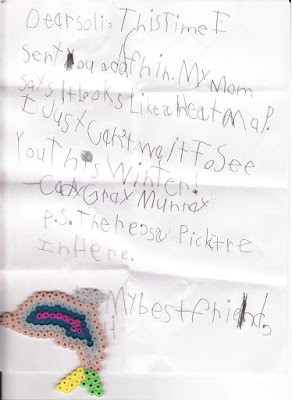 Dear soli, This Time I
sent You a dofhin. My Mom
says It Looks Like a heat Map.
I Just Can't wait To See
You This Winter!
Cady Gray Murray
P.S. There's a Picktre
In Here.
My best friend,